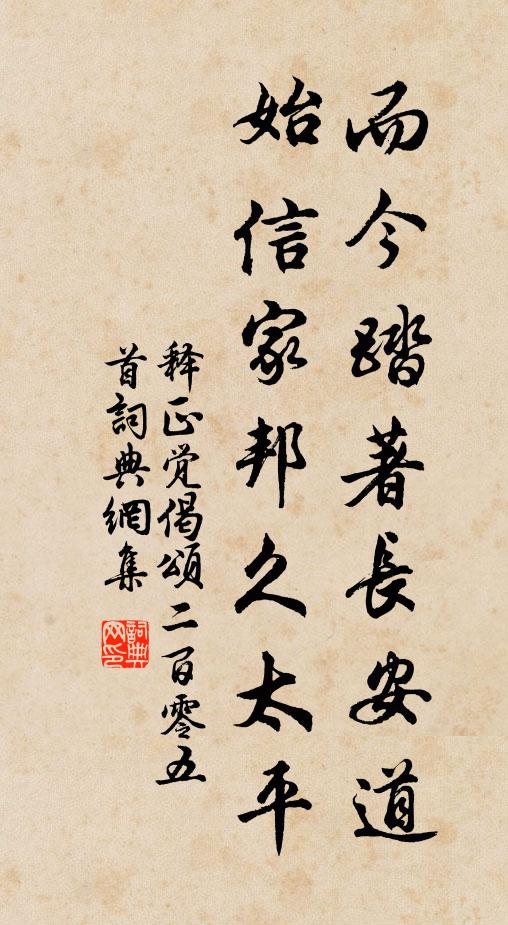 而今踏著長安道
始信家邦久太平
释正觉偈頌二百零五
首詞典網集
詞典网印